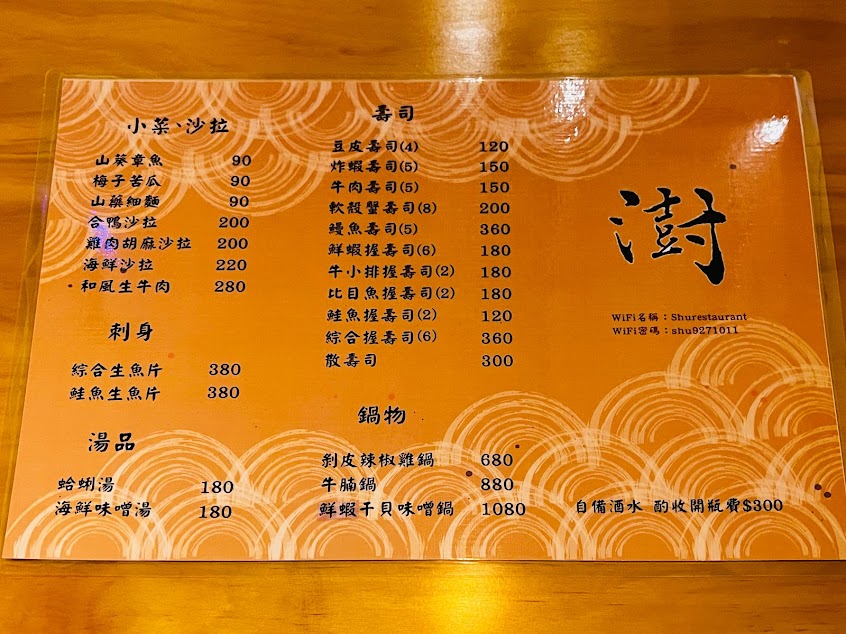 小菜、沙拉
山葵章魚 90
梅子苦瓜 90
山藥細麵 90
合鴨沙拉 200
雞肉胡麻沙拉 200
海鮮沙拉 220
和風生牛肉 280
刺身
綜合生魚片 380
鮭魚生魚片 380
湯品
蛤蜊湯 180
海鮮味噌湯 180
壽司
豆皮壽司(4) 120
炸蝦壽司(5) 150
牛肉壽司(5) 150
軟殼蟹壽司(8) 200
鰻魚壽司(5) 360
鮮蝦握壽司(6) 180
牛小排握壽司(2) 180
比目魚握壽司(2) 180
鮭魚握壽司(2) 120
綜合握壽司(6) 360
散壽司 300
鍋物
剝皮辣椒雞鍋 680
牛腩鍋 880
鮮蝦干貝味噌鍋 1080
澍
WiFi名稱：Shurestaurant
WiFi密碼：shu9271011
自備酒水 酌收開瓶費$300